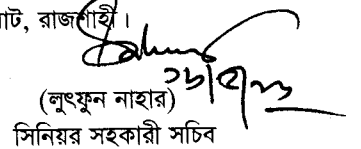 রাজশাহী।
(লুৎফুন নাহার)
সিনিয়র সহকারী সচিব